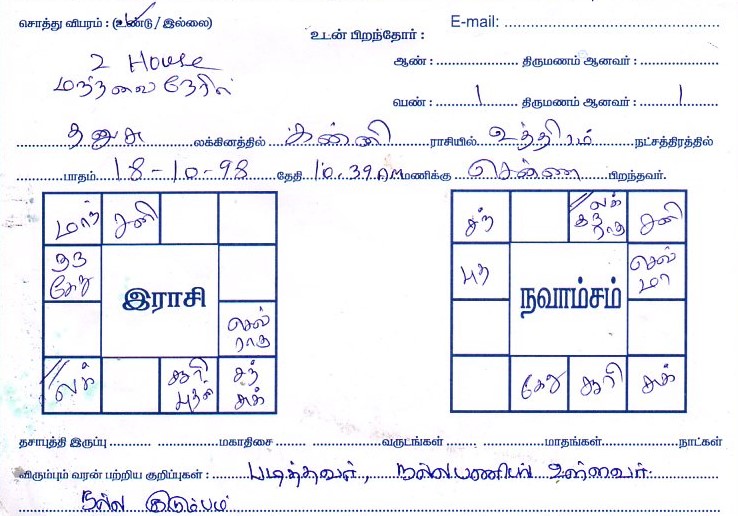 சொத்து விபரம் : (உண்டு / இல்லை)
E-mail:
உடன் பிறந்தோர் :
2 House
ஆண் : திருமணம் ஆனவர் :
பெண் : 1 திருமணம் ஆனவர் : 1
தனுசு லக்கினத்தில் கன்னி ராசியில் உத்திரம் நட்சத்திரத்தில்
பாதம் 18-10-98 தேதி 10.39 AM மணிக்கு சென்னை பிறந்தவர்.
மாந் சனி
லக் சனி
சந்
குரு கேது
புத
செவ் மா
இராசி
நவாம்சம்
செவ் ராகு
லக் சூரி புதன் சந் சுக்
கேது சூரி சுக்
தசாபுத்தி இருப்பு மகாதிசை வருடங்கள் மாதங்கள் நாட்கள்
விரும்பும் வரன் பற்றிய குறிப்புகள் : படித்தவர், நல்ல பணியில் உள்ளவர்.
நல்ல குடும்பம்